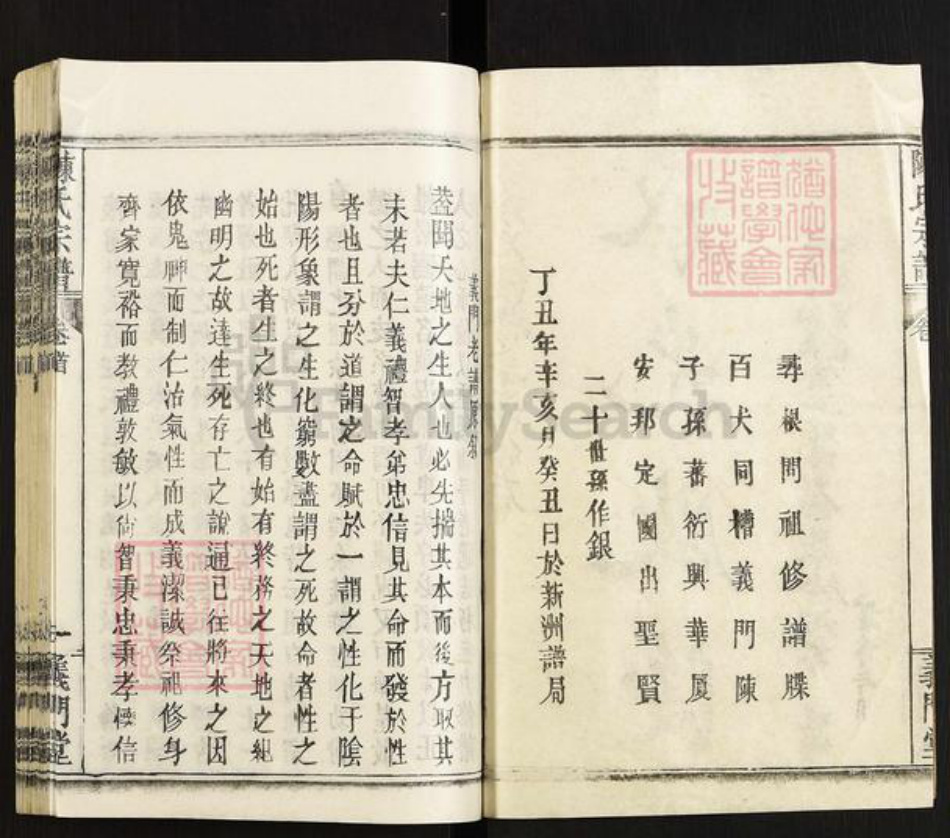 尋根問祖修譜牒
百犬同槽義門陳
子孫蕃衍興華厦
安邦定國出聖賢
二十世孫作銀
丁丑年辛亥月癸丑日於新洲譜局
陳氏宗譜
義門堂
義門老譜原叙
蓋聞天地之生人也必先揣其本而後方取其
未若夫仁義禮智孝弟忠信見其命而發於性
者也且分於道謂之命賦於一謂之性化于陰
陽形象謂之生化窮數盡謂之死故命者性之
始也死者生之終也有始有終務之天地之紀
幽明之故達生死存亡之說通已往將來之因
依鬼神而制仁治氣性而成義潔誠祭祀修身
齊家寬裕而教禮敦敏以尚智秉忠秉孝懷信
陳氏宗譜
卷首
一
義門堂
FamilySearch